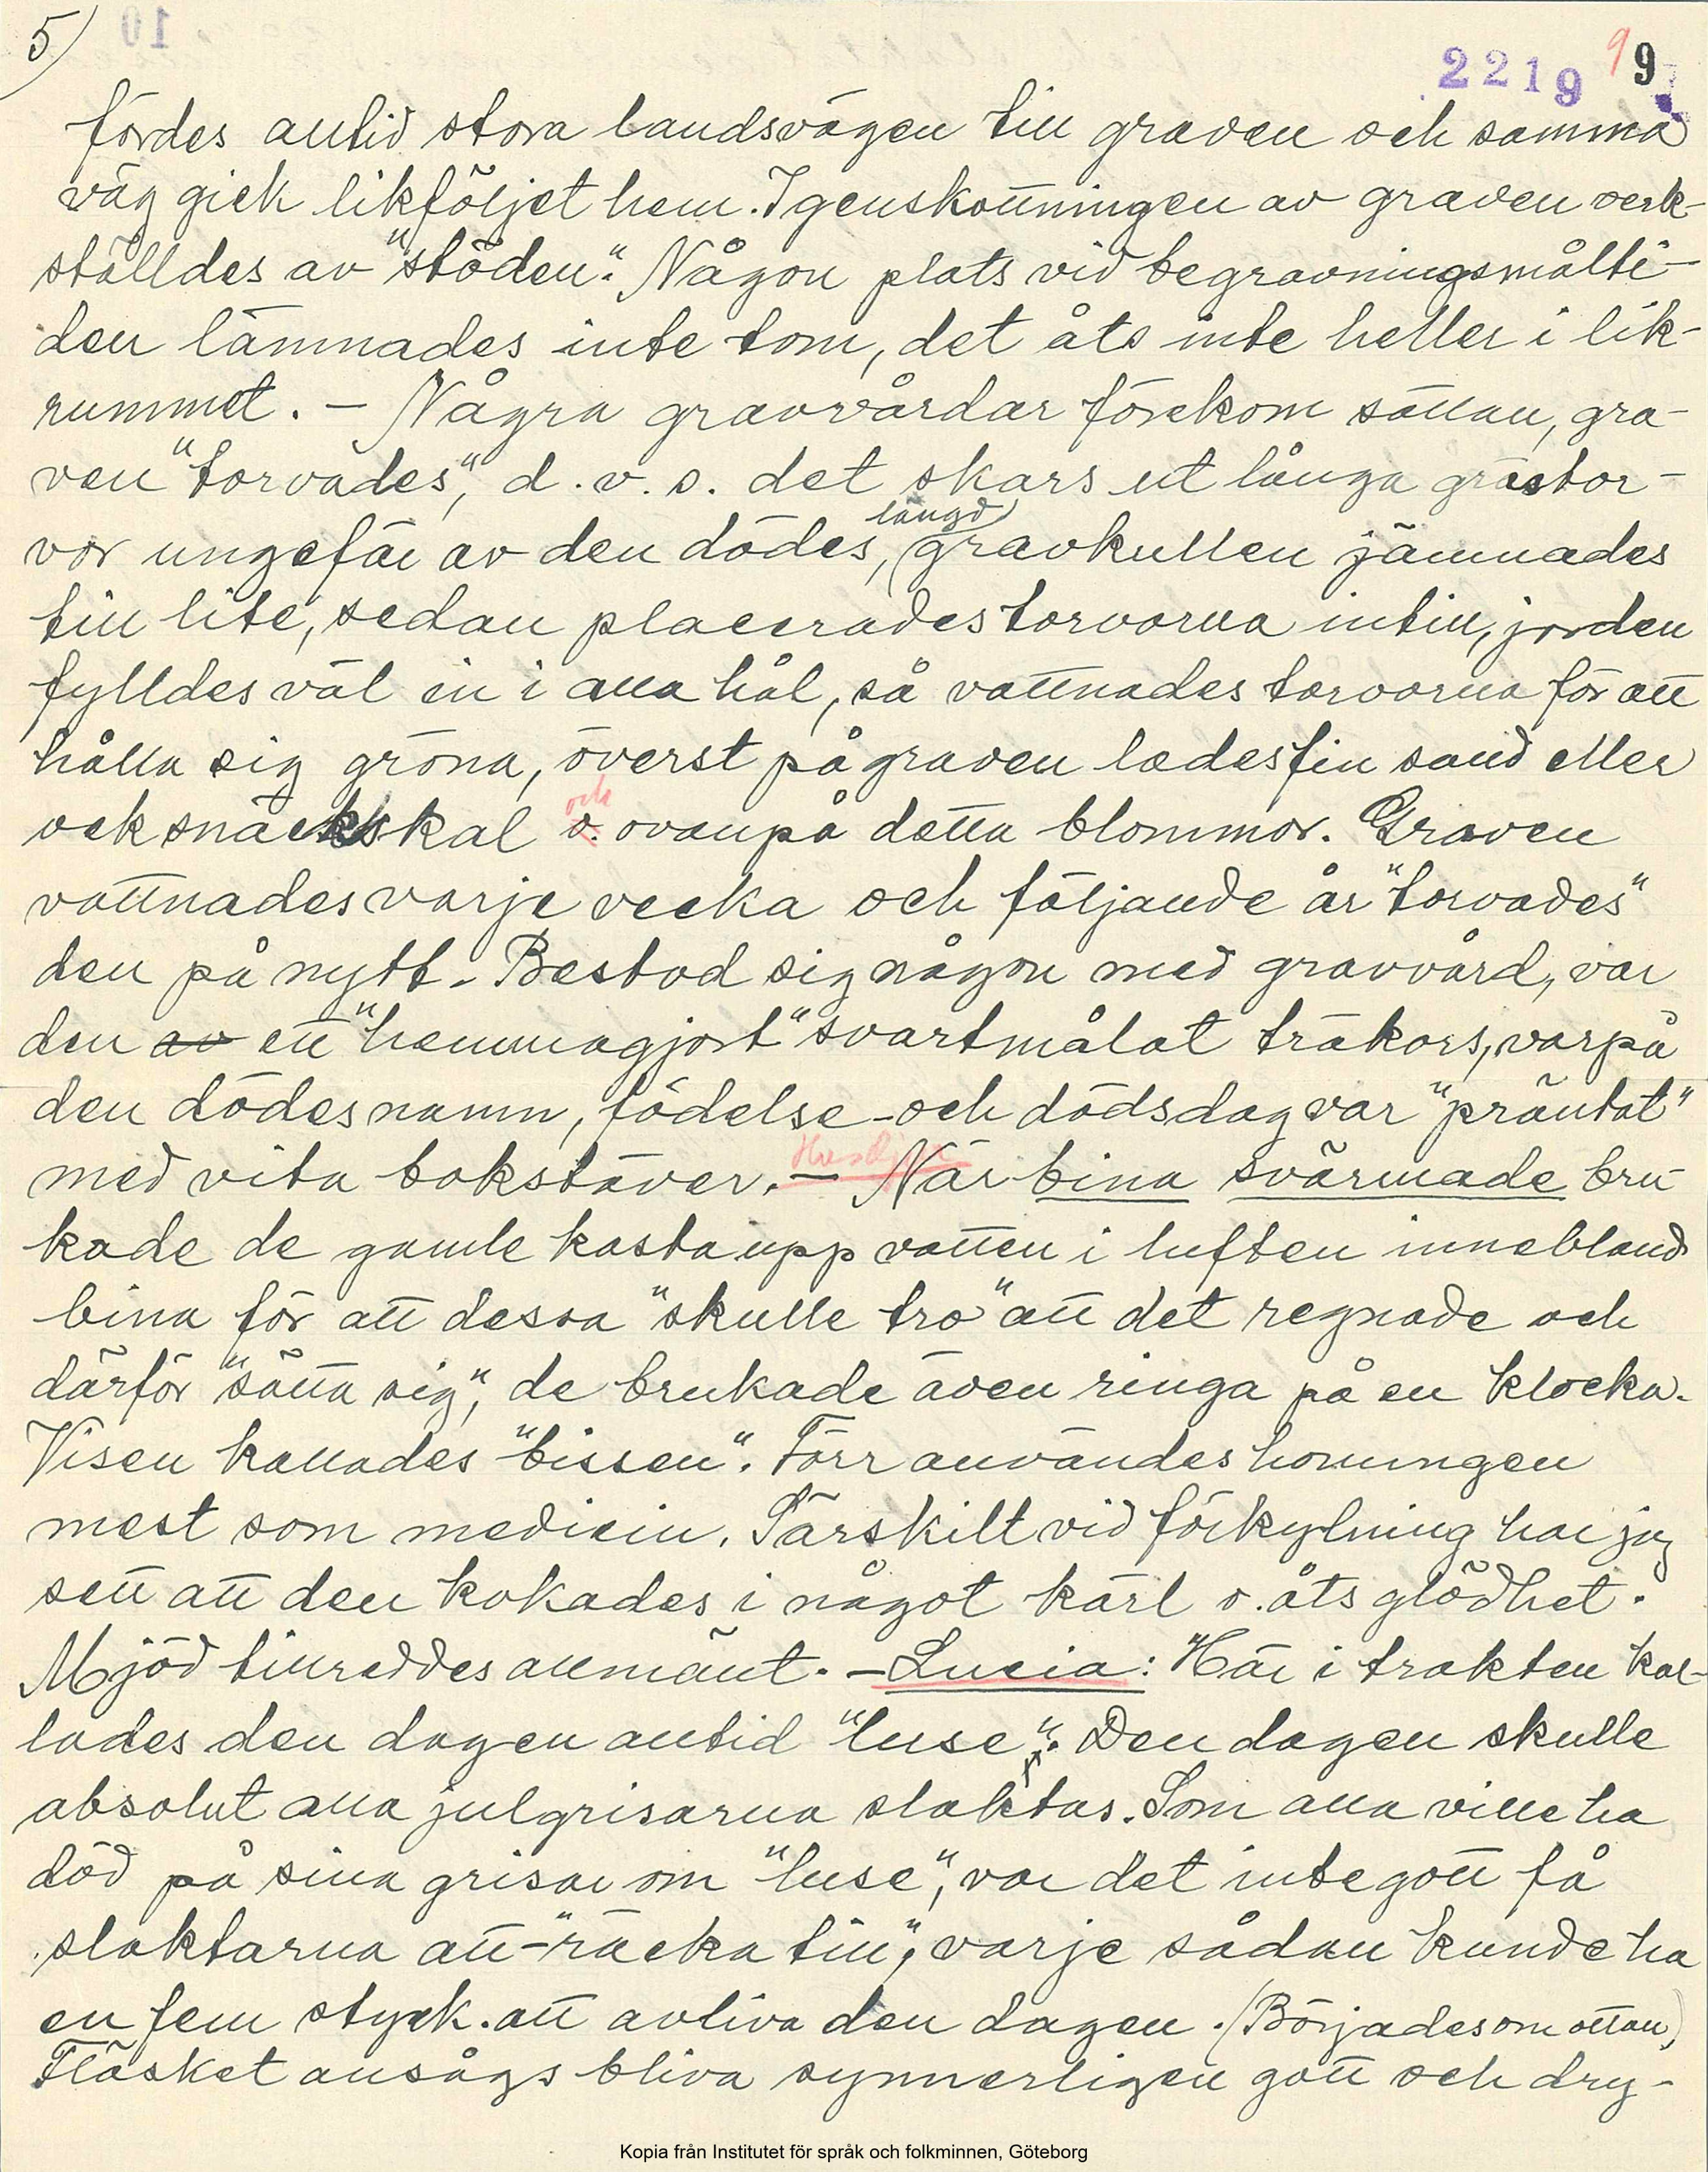 5)
2219 9 9
fördes alltid stora landsvägen till graven och samma
väg gick likföljet hem. Igenskottningen av graven verk-
ställdes av "stöden". Någon plats vid begravningsmålti-
den lämnades inte tom, det åts inte heller i lik-
rummet. – Några gravvårdar förekom sällan, gra-
ven "torvades", d.v.s. det skars ut långa grästor-
längd
vor ungefär av den dödes, gravkullen jämnades
till lite, sedan placerades torvorna intill, jorden
fylldes väl in i alla hål, så vattnades torvorna för att
hålla sig gröna, överst på graven lades fin sand eller
och
ock snäckskal o. ovanpå detta blommor. Graven
vattnades varje vecka och följande år "torvades"
den på nytt. Bestod sig någon med gravvård, var
den av ett "hemmagjort" svartmålat träkors, varpå
den dödes namn, födelse- och dödsdag var "präntat"
Husdjur
med vita bokstäver. – När bina svärmade bru-
kade de gamle kasta upp vatten i luften innebland
bina för att dessa "skulle tro" att det regnade och
därför "sätta sig", de brukade även ringa på en klocka.
Visen kallades "bissen". Förr användes honungen
mest som medicin. Särskilt vid förkylning har jag
sett att den kokades i något kärl o. åts glödhet.
Mjöd tillreddes allmänt. – Lucia: Här i trakten kal-
lades den dagen alltid "luse". Den dagen skulle
absolut alla julgrisarna slaktas. Som alla ville ha
död på sina grisar om "luse", var det inte gott få
slaktarna att "räcka till", varje sådan kunde ha
en fem styck. att avliva den dagen. (Börjades om ottan)
Fläsket ansågs bliva synnerligen gott och dry-
Kopia från Institutet för språk och folkminnen, Göteborg